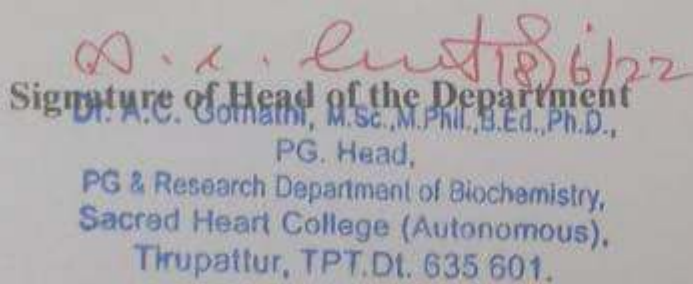 18/6/22
Signature of Head of the Department
Dr. A.C. Gomathi, M.Sc.,M.Phil.,B.Ed.,Ph.D.,
PG. Head,
PG & Research Department of Biochemistry,
Sacred Heart College (Autonomous),
Tirupattur, TPT.Dt. 635 601.